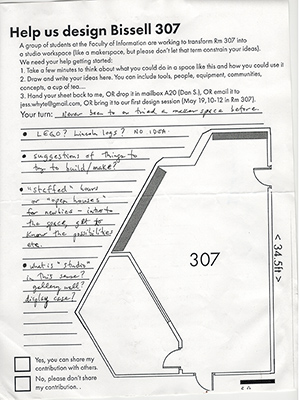 Help us design Bissell 307
A group of students at the Faculty of Information are working to transform Rm 307 into
a studio workspace (like a makerspace, but please don't let that term constrain your ideas).
We need your help getting started:
1. Take a few minutes to think about what you could do in a space like this and how you could use it
2. Draw and write your ideas here. You can include tools, people, equipment, communities,
concepts, a cup of tea....
3. Hand your sheet back to me, OR drop it in mailbox A20 (Dan S.), OR email it to
jess.whyte@gmail.com, OR bring it to our first design session (May 19, 10-12 in Rm 307).
Your turn: Never been to or tried a maker space before.
• LEGO? Lincoln logs? NO IDEA.
• suggestions of things to
try to build/make?
• "staffed" hours
or "open houses"
for newbies - intro to
the space, get to
know the possibilities
etc.
• what is "studio"
in this sense?
gallery wall?
display case?
307
< 34.5ft >
Yes, you can share my
contribution with others.
No, please don't share
my contribution. .